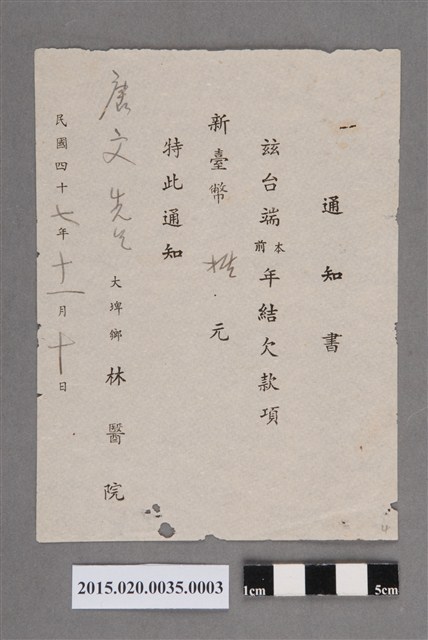 通知書
茲台端本前年結欠款項
新臺幣 元
特此通知
唐文先生 大埤鄉 林醫院
民國四十七年十一月十日
2015.020.0035.0003
1cm 5cm